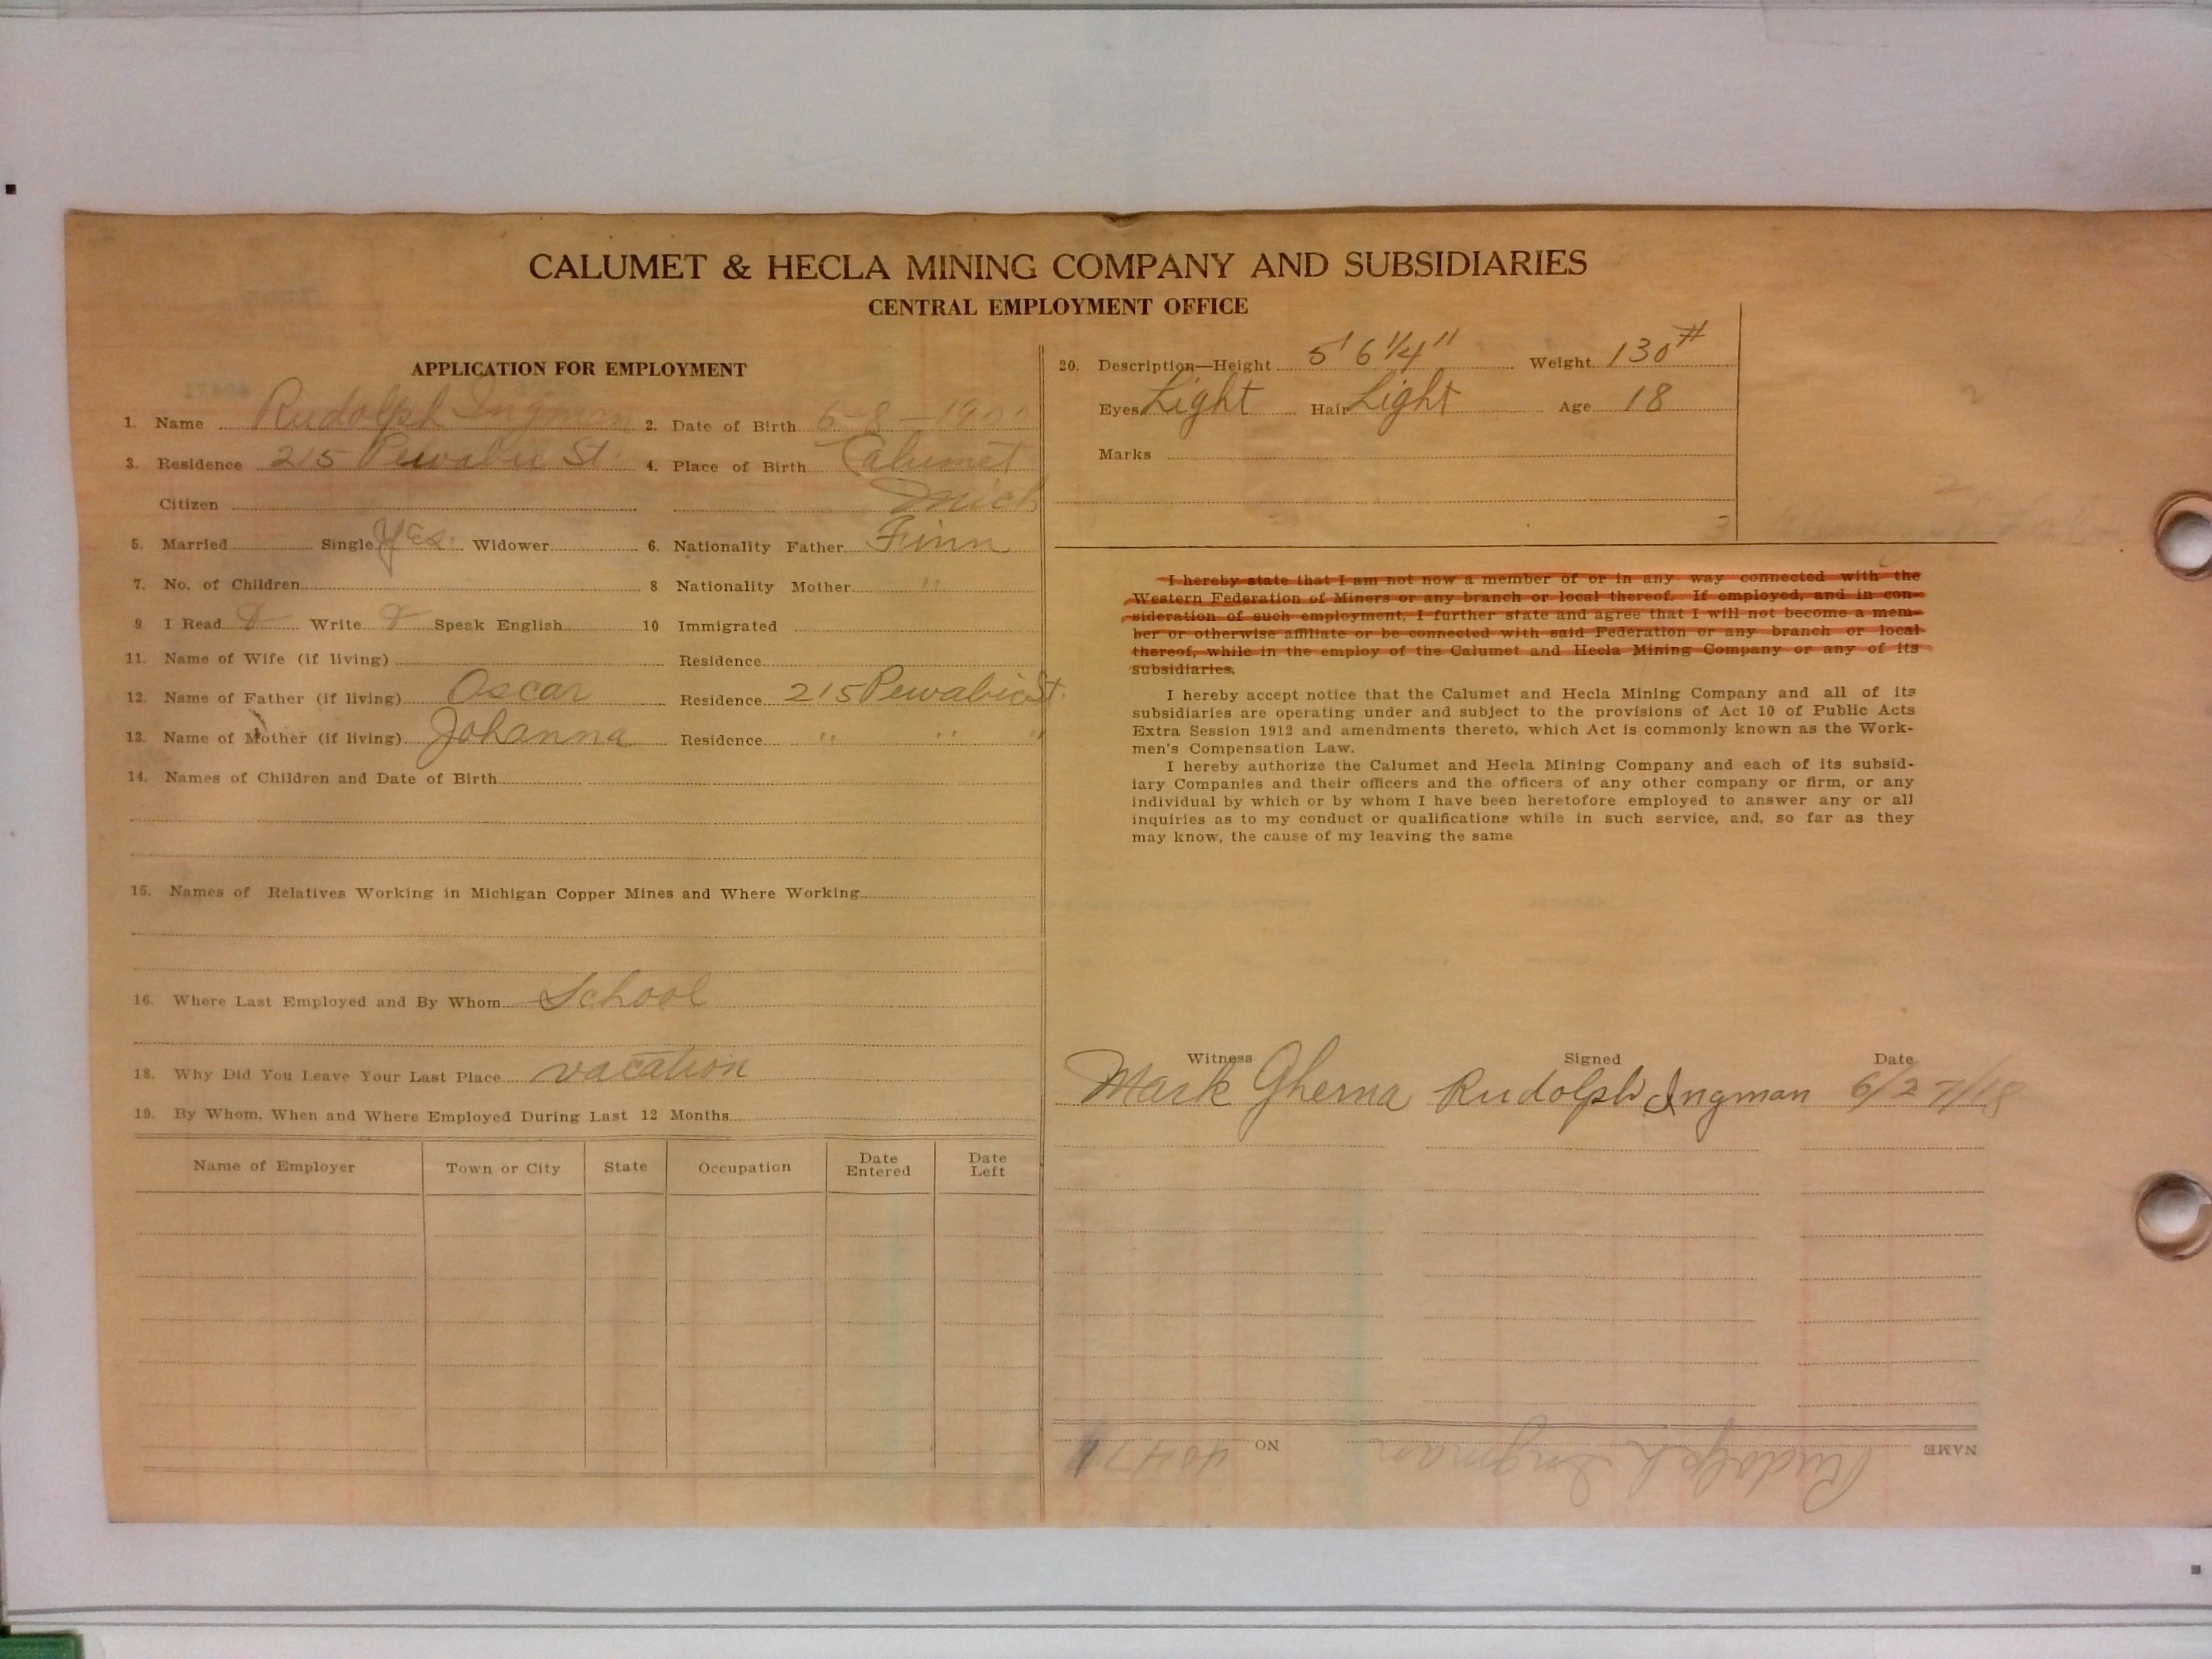 CALUMET & HECLA MINING COMPANY AND SUBSIDIARIES
CENTRAL EMPLOYMENT OFFICE
APPLICATION FOR EMPLOYMENT
1. Name Rudolph Ingman 2. Date of Birth 6-8-190
3. Residence 215 Pewabic St. 4. Place of Birth Calumet
Citizen Mich
5. Married Single Yes. Widower 6. Nationality Father Finn
7. No. of Children 8 Nationality Mother "
9 I Read Write Speak English 10 Immigrated
11. Name of Wife (if living) Residence
12. Name of Father (if living) Oscar Residence 215 Pewabic St.
13. Name of Mother (if living) Johanna Residence " " "
14. Names of Children and Date of Birth
15. Names of Relatives Working in Michigan Copper Mines and Where Working
16. Where Last Employed and By Whom School
18. Why Did You Leave Your Last Place vacation
19. By Whom, When and Where Employed During Last 12 Months
Name of Employer Town or City State Occupation Date Entered Date Left
20. Description—Height 5' 6 1/4" Weight 130#
Eyes Light Hair Light Age 18
Marks
I hereby state that I am not now a member of or in any way connected with the
Western Federation of Miners or any branch or local thereof. If employed, and in con-
sideration of such employment, I further state and agree that I will not become a mem-
ber or otherwise affiliate or be connected with said Federation or any branch or local
thereof, while in the employ of the Calumet and Hecla Mining Company or any of its
subsidiaries.
I hereby accept notice that the Calumet and Hecla Mining Company and all of its
subsidiaries are operating under and subject to the provisions of Act 10 of Public Acts
Extra Session 1912 and amendments thereto, which Act is commonly known as the Work-
men's Compensation Law.
I hereby authorize the Calumet and Hecla Mining Company and each of its subsid-
iary Companies and their officers and the officers of any other company or firm, or any
individual by which or by whom I have been heretofore employed to answer any or all
inquiries as to my conduct or qualifications while in such service, and, so far as they
may know, the cause of my leaving the same
Witness Signed Date
Mark Gherna Rudolph Ingman 6/27/18
NAME Rudolph Ingman NO 40471